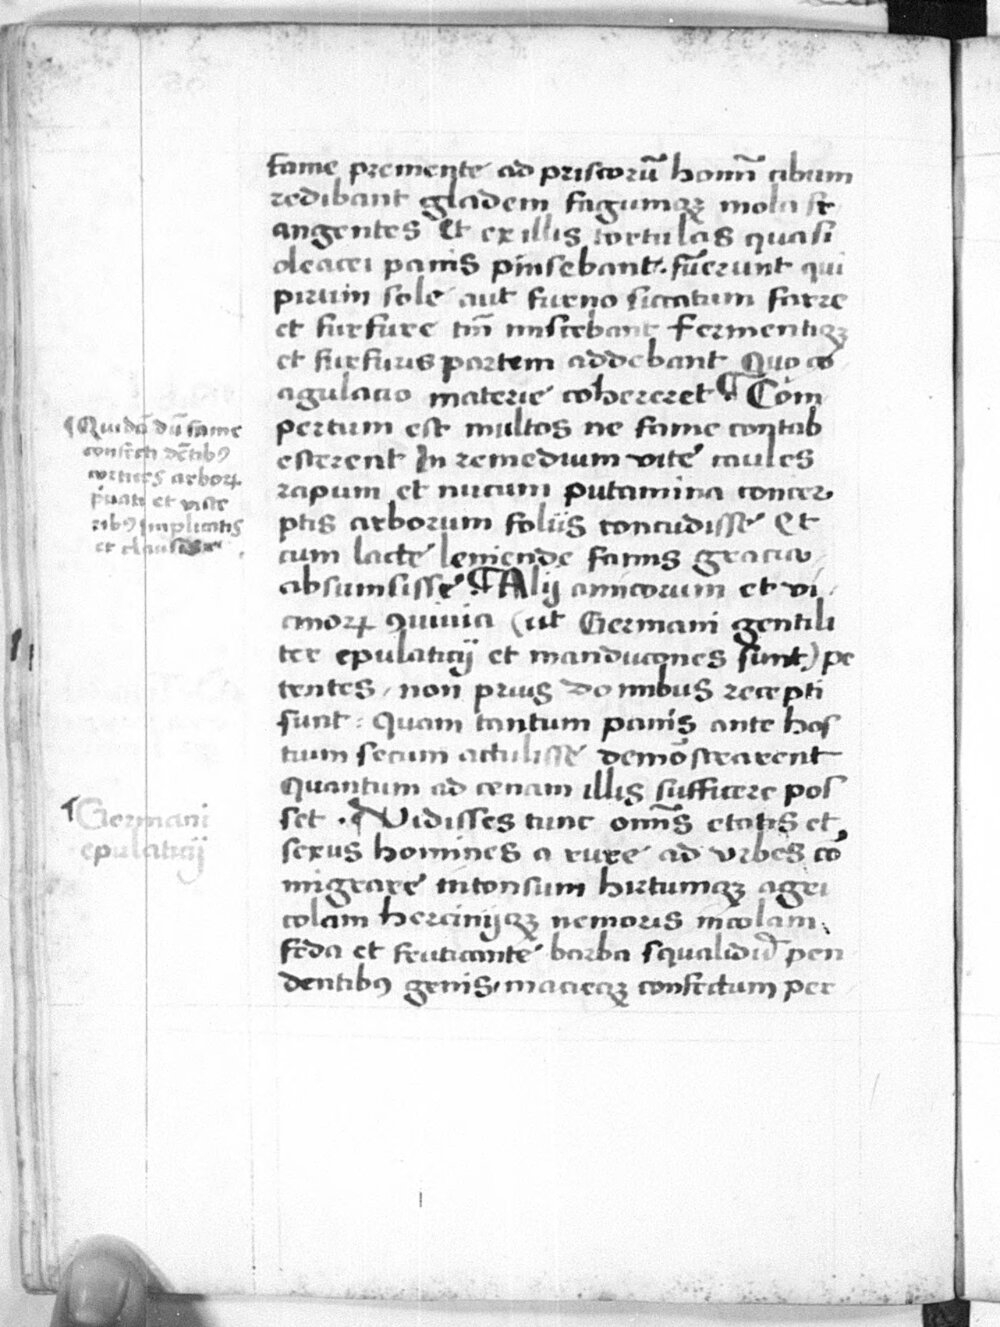 fame premente ad priscorū hoīm̄ cibum
redibant gladem fagumqꝫ mola fr
angentes Et ex illis tortulas quasi
oleacei panis pinsebant. fuerunt qui
pirum sole aut furno siccatum farre
et furfure tm̄ miscebant fermentiqꝫ
et furfuris partem addebant Quo co
agulatio materie cohereret ¶ Com
pertum est multos ne fame contab
escerent In remedium vite caules
rapum et nucum putamina concer
ptis arborum foliis contudisse Et
cum lacte leniende famis gracia
absumsisse ¶ Alij amicorum et vi
cinorꝝ ꝯuiuia (ut Germani gentili
ter epulaticij et manducones sunt) pe
tentes, non prius domibus recepti
sunt: Quam tantum panis ante hos
tium secum attulisse demōstrarent
Quantum ad cenam illis sufficere pos
set. Vidisses tunc om̄s etatis et
sexus homines a rure ad vrbes cō
migrare intonsum hirtumqꝫ agri
colam hercinijqꝫ nemoris incolam
feda et fruticante barba squalidisqꝫ pen
dentibꝰ genis, macieqꝫ confectum per
¶ Quidā dū fame
confecti dētibꝰ
cortices arborꝝ
et visce
ribꝰ implicatis
et clausis
¶ Germani
epulaticij